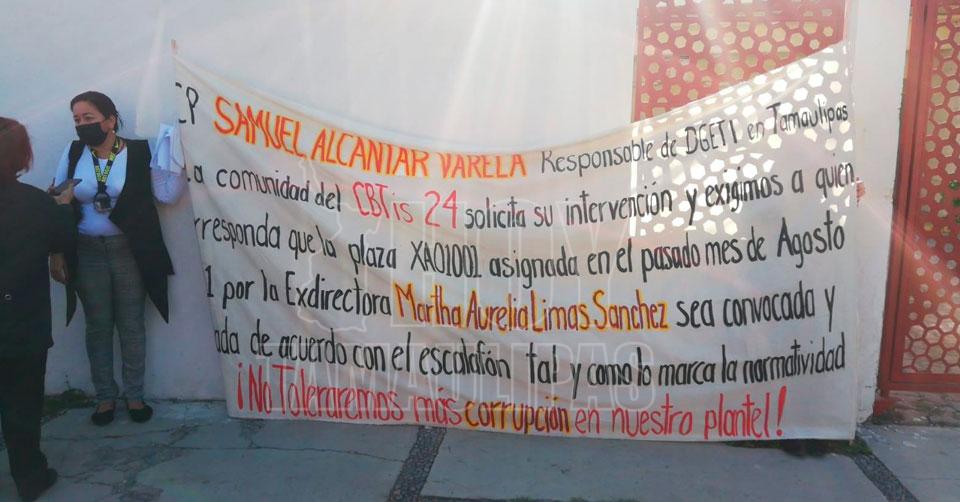 CP SAMUEL ALCANTAR VARELA Responsable de DGETI en Tamaulipas
La comunidad del CBTis 24 solicita su intervención y exigimos a quien
rresponda que la plaza XA01001 asignada en el pasado mes de Agosto
1 por la Exdirectora Martha Aurelia Limas Sanchez sea convocada y
ada de acuerdo con el escalafón tal y como lo marca la normatividad
¡No Toleraremos más corrupción en nuestro plantel!
HOY
TAMAULIPAS